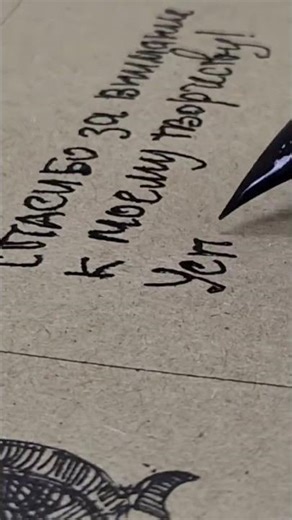 спасибо за внимание
к моему творчеству!
Усп